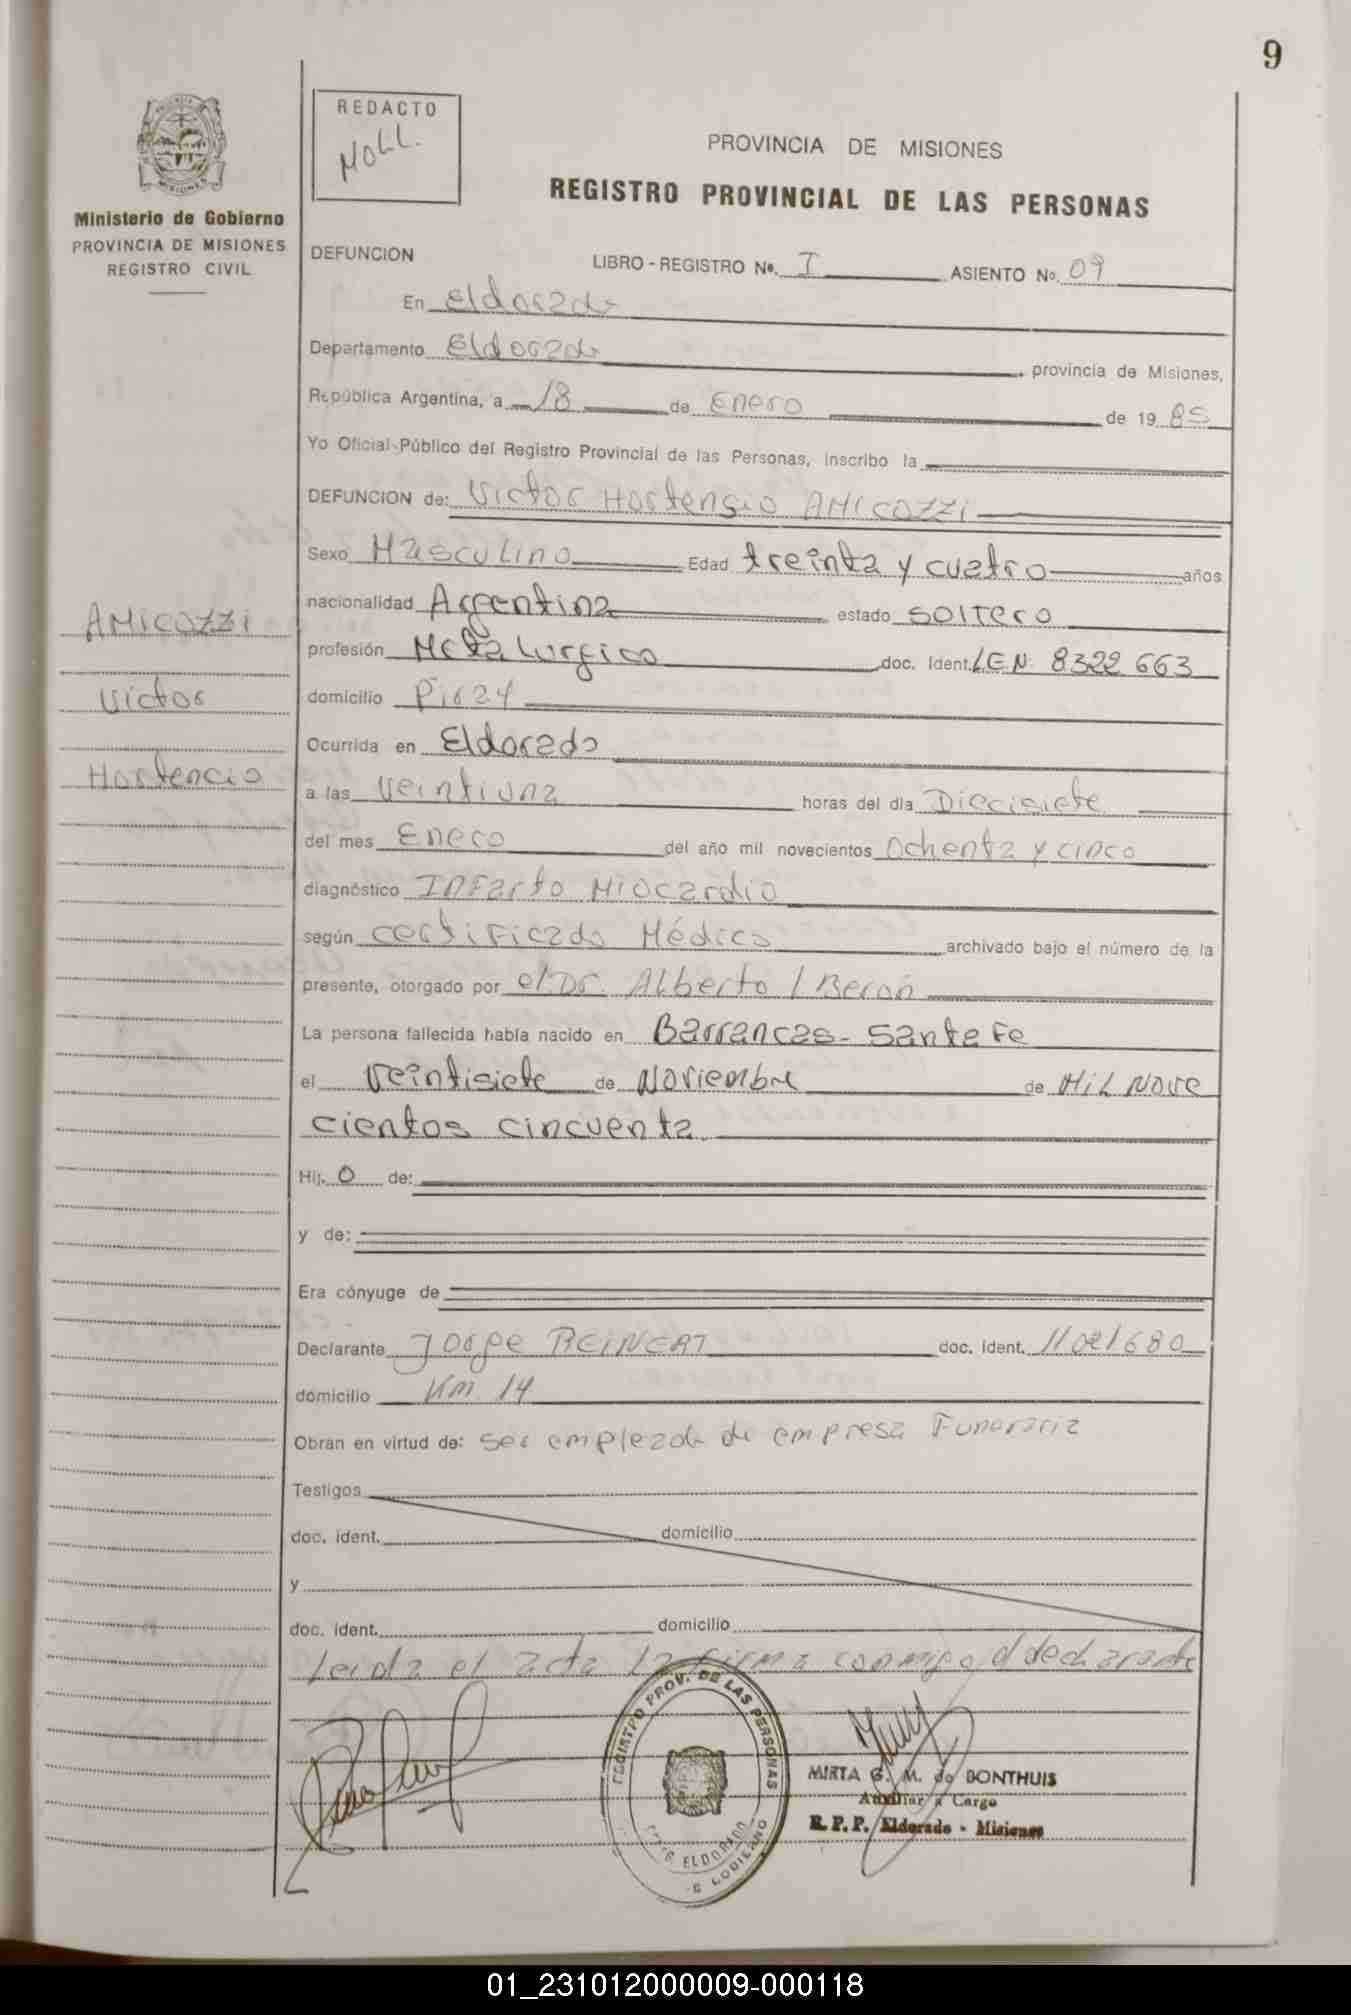 9
REDACTO
Moll.
PROVINCIA DE MISIONES
REGISTRO PROVINCIAL DE LAS PERSONAS
Ministerio de Gobierno
PROVINCIA DE MISIONES
REGISTRO CIVIL
DEFUNCION LIBRO - REGISTRO No. I ASIENTO No. 09
En Eldorado
Departamento Eldorado, provincia de Misiones,
República Argentina, a 18 de Enero de 1985
Yo Oficial Público del Registro Provincial de las Personas, inscribo la
DEFUNCION de: Victor Hortensio AMICOZZI
Sexo Masculino Edad treinta y cuatro años
nacionalidad Argentina estado soltero
AMICOZZI
profesión Metalurgico doc. Ident. L.E.N. 8322663
Victor
domicilio Piray
Ocurrida en Eldorado
Hortencio
a las veintiuna horas del día Diecisiete
del mes Enero del año mil novecientos Ochenta y cinco
diagnóstico Infarto Miocardio
según certificado Médico archivado bajo el número de la
presente, otorgado por el Dr. Alberto I Berón
La persona fallecida había nacido en Barrancas - Santa Fe
el veintisiete de Noviembre de Mil Nove
cientos cincuenta
Hij. o de:
y de:
Era cónyuge de
Declarante Jorge REINERT doc. ident. 11021680
domicilio Km. 14
Obran en virtud de: ser empleado de empresa Funeraria
Testigos
doc. ident. domicilio
y
doc. ident. domicilio
Leida el acta la firma conmigo el declarante
REGISTRO PROV. DE LAS PERSONAS
ELDORADO
MIRTA G. M. de BONTHUIS
Auxiliar a Cargo
R. P. P. Eldorado - Misiones
01_231012000009-000118